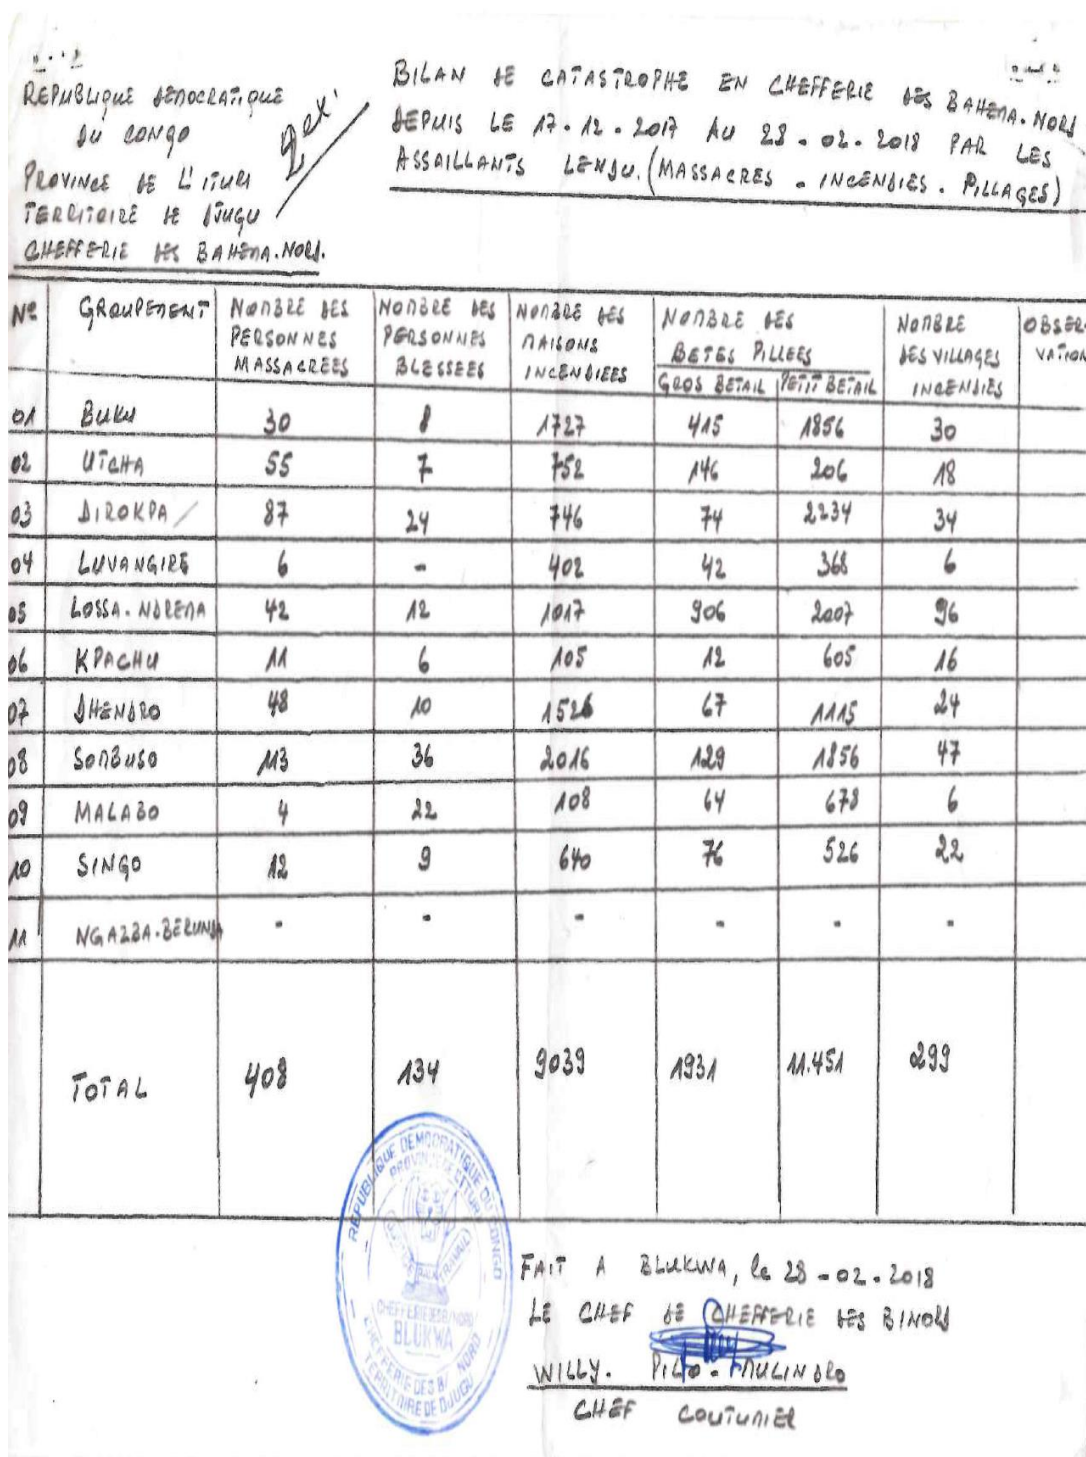 REPUBLIQUE DEMOCRATIQUE
DU CONGO
PROVINCE DE L'ITURI
TERRITOIRE DE DJUGU
CHEFFERIE DES BAHEMA.NORD.
BILAN DE CATASTROPHE EN CHEFFERIE DES BAHEMA.NORD
DEPUIS LE 17.12.2017 AU 28.02.2018 PAR LES
ASSAILLANTS LENDU.(MASSACRES - INCENDIES. PILLAGES)
N° GROUPEMENT NOMBRE DES PERSONNES MASSACREES NOMBRE DES PERSONNES BLESSEES NOMBRE DES MAISONS INCENDIEES NOMBRE DES BETES PILLEES GROS BETAIL PETIT BETAIL NOMBRE DES VILLAGES INCENDIES OBSERVATION
01 BUKU 30 8 1727 415 1856 30
02 UTCHA 55 7 752 146 206 18
03 DIROKPA 87 24 746 74 2234 34
04 LUVANGIRE 6 - 402 42 368 6
05 LOSSA.NDREMA 42 12 1017 906 2007 96
06 KPACHU 11 6 105 12 605 16
07 DHENDRO 48 10 1526 67 1115 24
08 SOMBUSO 113 36 2016 129 1856 47
09 MALABO 4 22 108 64 678 6
10 SINGO 12 9 640 76 526 22
11 NGAZBA.BERUNDA - - - - - -
TOTAL 408 134 9039 1931 11.451 299
REPUBLIQUE DEMOCRATIQUE DU CONGO
PROVINCE DE L'ITURI
TRAVAIL
BLUKWA
CHEFFERIE DES B/ NORD
TERRITOIRE DE DJUGU
FAIT A BLUKWA, le 28-02.2018
LE CHEF DE CHEFFERIE DES B/NORD
WILLY.
CHEF COUTUMIER